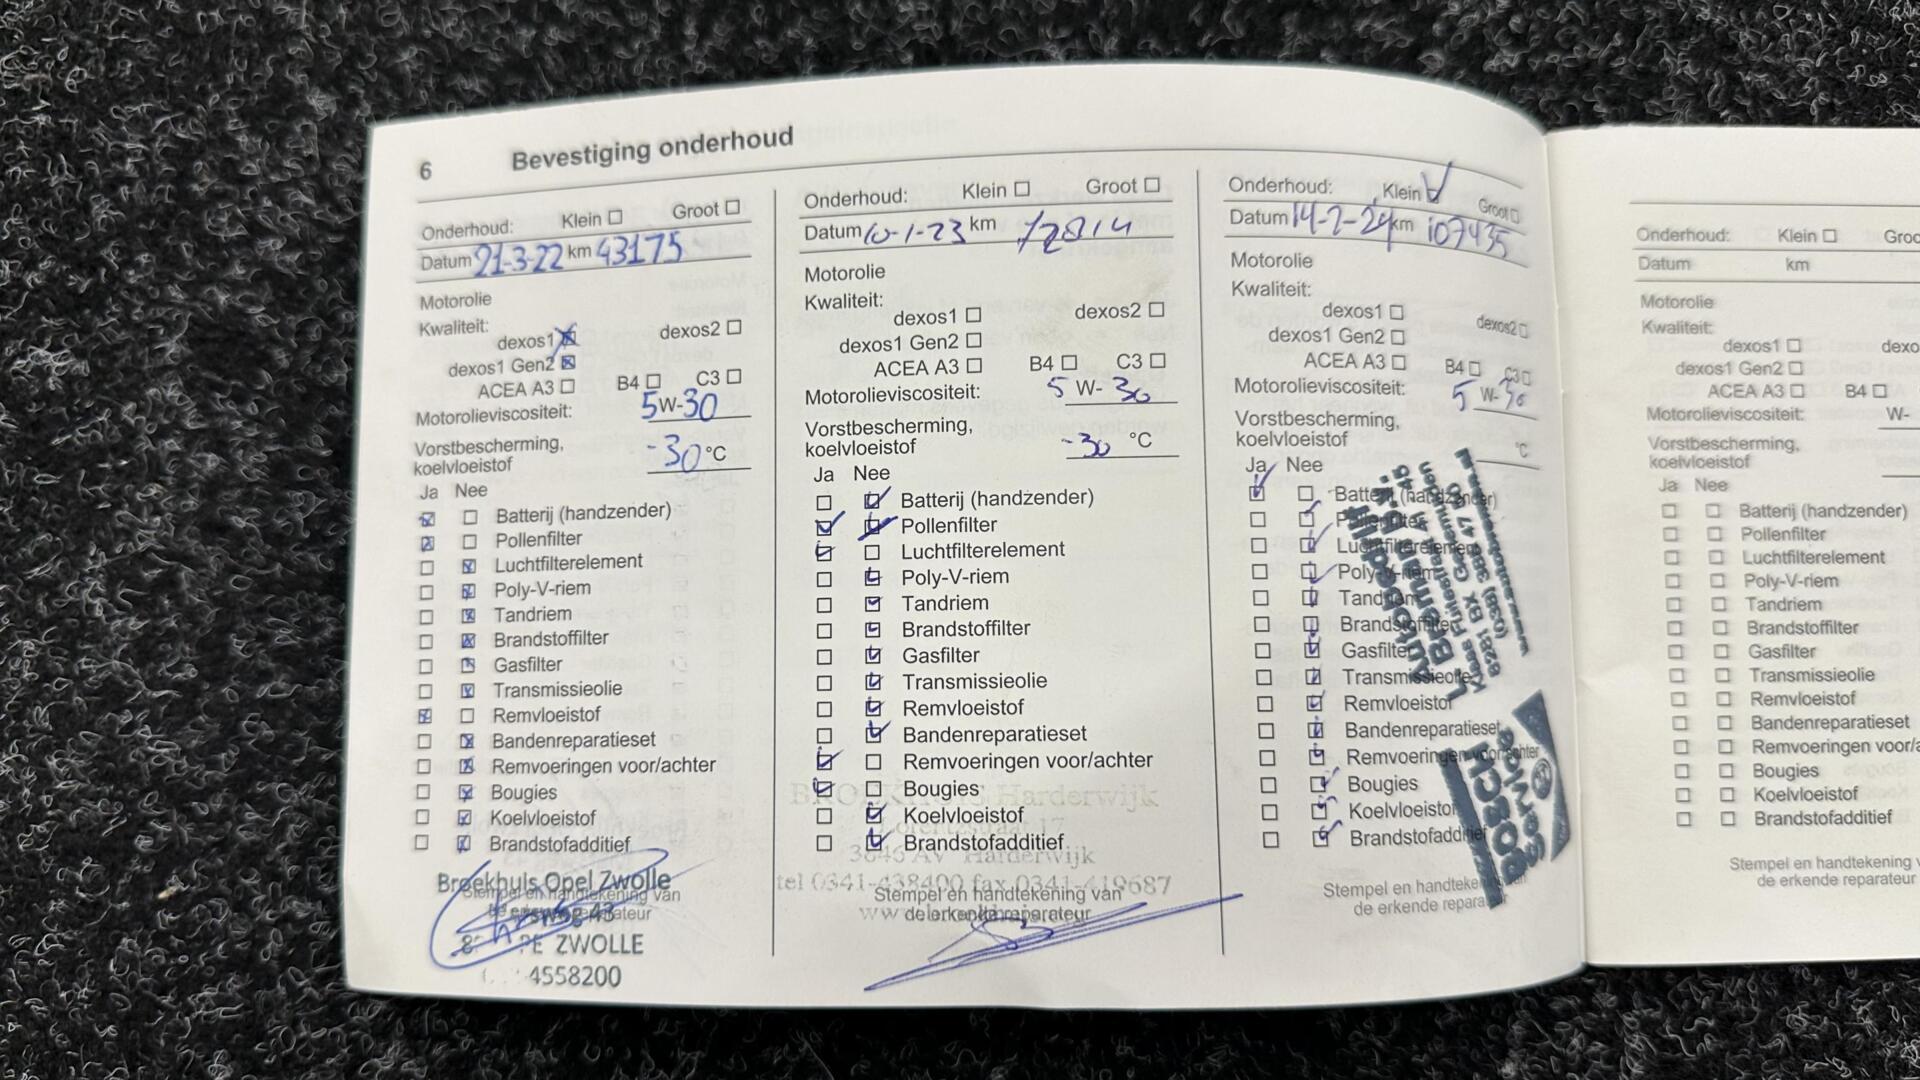 6 Bevestiging onderhoud
Onderhoud: Klein ☐ Groot ☐
Datum 21-3-22 km 43175
Motorolie
Kwaliteit:
dexos1 ☒ dexos2 ☐
dexos1 Gen2 ☒
ACEA A3 ☐ B4 ☐ C3 ☐
Motorolieviscositeit: 5W-30
Vorstbescherming,
koelvloeistof -30 °C
Ja Nee
☒ ☐ Batterij (handzender)
☒ ☐ Pollenfilter
☐ ☒ Luchtfilterelement
☐ ☒ Poly-V-riem
☐ ☒ Tandriem
☐ ☒ Brandstoffilter
☐ ☒ Gasfilter
☐ ☒ Transmissieolie
☒ ☐ Remvloeistof
☐ ☒ Bandenreparatieset
☐ ☒ Remvoeringen voor/achter
☐ ☒ Bougies
☐ ☒ Koelvloeistof
☐ ☒ Brandstofadditief
Broekhuis Opel Zwolle
Stempel en handtekening van
de erkende reparateur
43
ZWOLLE
4558200
Onderhoud: Klein ☐ Groot ☐
Datum 10-1-23 km 72814
Motorolie
Kwaliteit:
dexos1 ☐ dexos2 ☐
dexos1 Gen2 ☐
ACEA A3 ☐ B4 ☐ C3 ☐
Motorolieviscositeit: 5 W-30
Vorstbescherming,
koelvloeistof -30 °C
Ja Nee
☐ ☑ Batterij (handzender)
☑ ☑ Pollenfilter
☑ ☐ Luchtfilterelement
☐ ☑ Poly-V-riem
☐ ☑ Tandriem
☐ ☑ Brandstoffilter
☐ ☑ Gasfilter
☐ ☑ Transmissieolie
☐ ☑ Remvloeistof
☐ ☑ Bandenreparatieset
☑ ☐ Remvoeringen voor/achter
☑ ☐ Bougies
☐ ☑ Koelvloeistof
☐ ☑ Brandstofadditief
BROEKHUIS Harderwijk
Lorentzstraat 17
3846 AV Harderwijk
tel 0341-438400 fax 0341-419687
Stempel en handtekening van
de erkende reparateur
Onderhoud: Klein ☑ Groot ☐
Datum 14-2-24 km 107435
Motorolie
Kwaliteit:
dexos1 ☐ dexos2 ☐
dexos1 Gen2 ☐
ACEA A3 ☐ B4 ☐ C3 ☐
Motorolieviscositeit: 5 W-30
Vorstbescherming,
koelvloeistof °C
Ja Nee
☑ ☐ Batterij (handzender)
☐ ☑ Pollenfilter
☐ ☑ Luchtfilterelement
☐ ☑ Poly-V-riem
☐ ☑ Tandriem
☐ ☑ Brandstoffilter
☐ ☑ Gasfilter
☐ ☑ Transmissieolie
☐ ☑ Remvloeistof
☐ ☑ Bandenreparatieset
☐ ☑ Remvoeringen voor/achter
☐ ☑ Bougies
☐ ☑ Koelvloeistof
☐ ☑ Brandstofadditief
Autobedrijf
8281 BX Genemuiden
BOSCH
Service
Stempel en handtekening van
de erkende reparateur
Onderhoud: Klein ☐
Datum km
Motorolie
Kwaliteit:
dexos1 ☐
dexos1 Gen2 ☐
ACEA A3 ☐ B4 ☐
Motorolieviscositeit: W-
Vorstbescherming,
koelvloeistof
Ja Nee
☐ ☐ Batterij (handzender)
☐ ☐ Pollenfilter
☐ ☐ Luchtfilterelement
☐ ☐ Poly-V-riem
☐ ☐ Tandriem
☐ ☐ Brandstoffilter
☐ ☐ Gasfilter
☐ ☐ Transmissieolie
☐ ☐ Remvloeistof
☐ ☐ Bandenreparatieset
☐ ☐ Remvoeringen voor/
☐ ☐ Bougies
☐ ☐ Koelvloeistof
☐ ☐ Brandstofadditief
Stempel en handtekening
de erkende reparateur